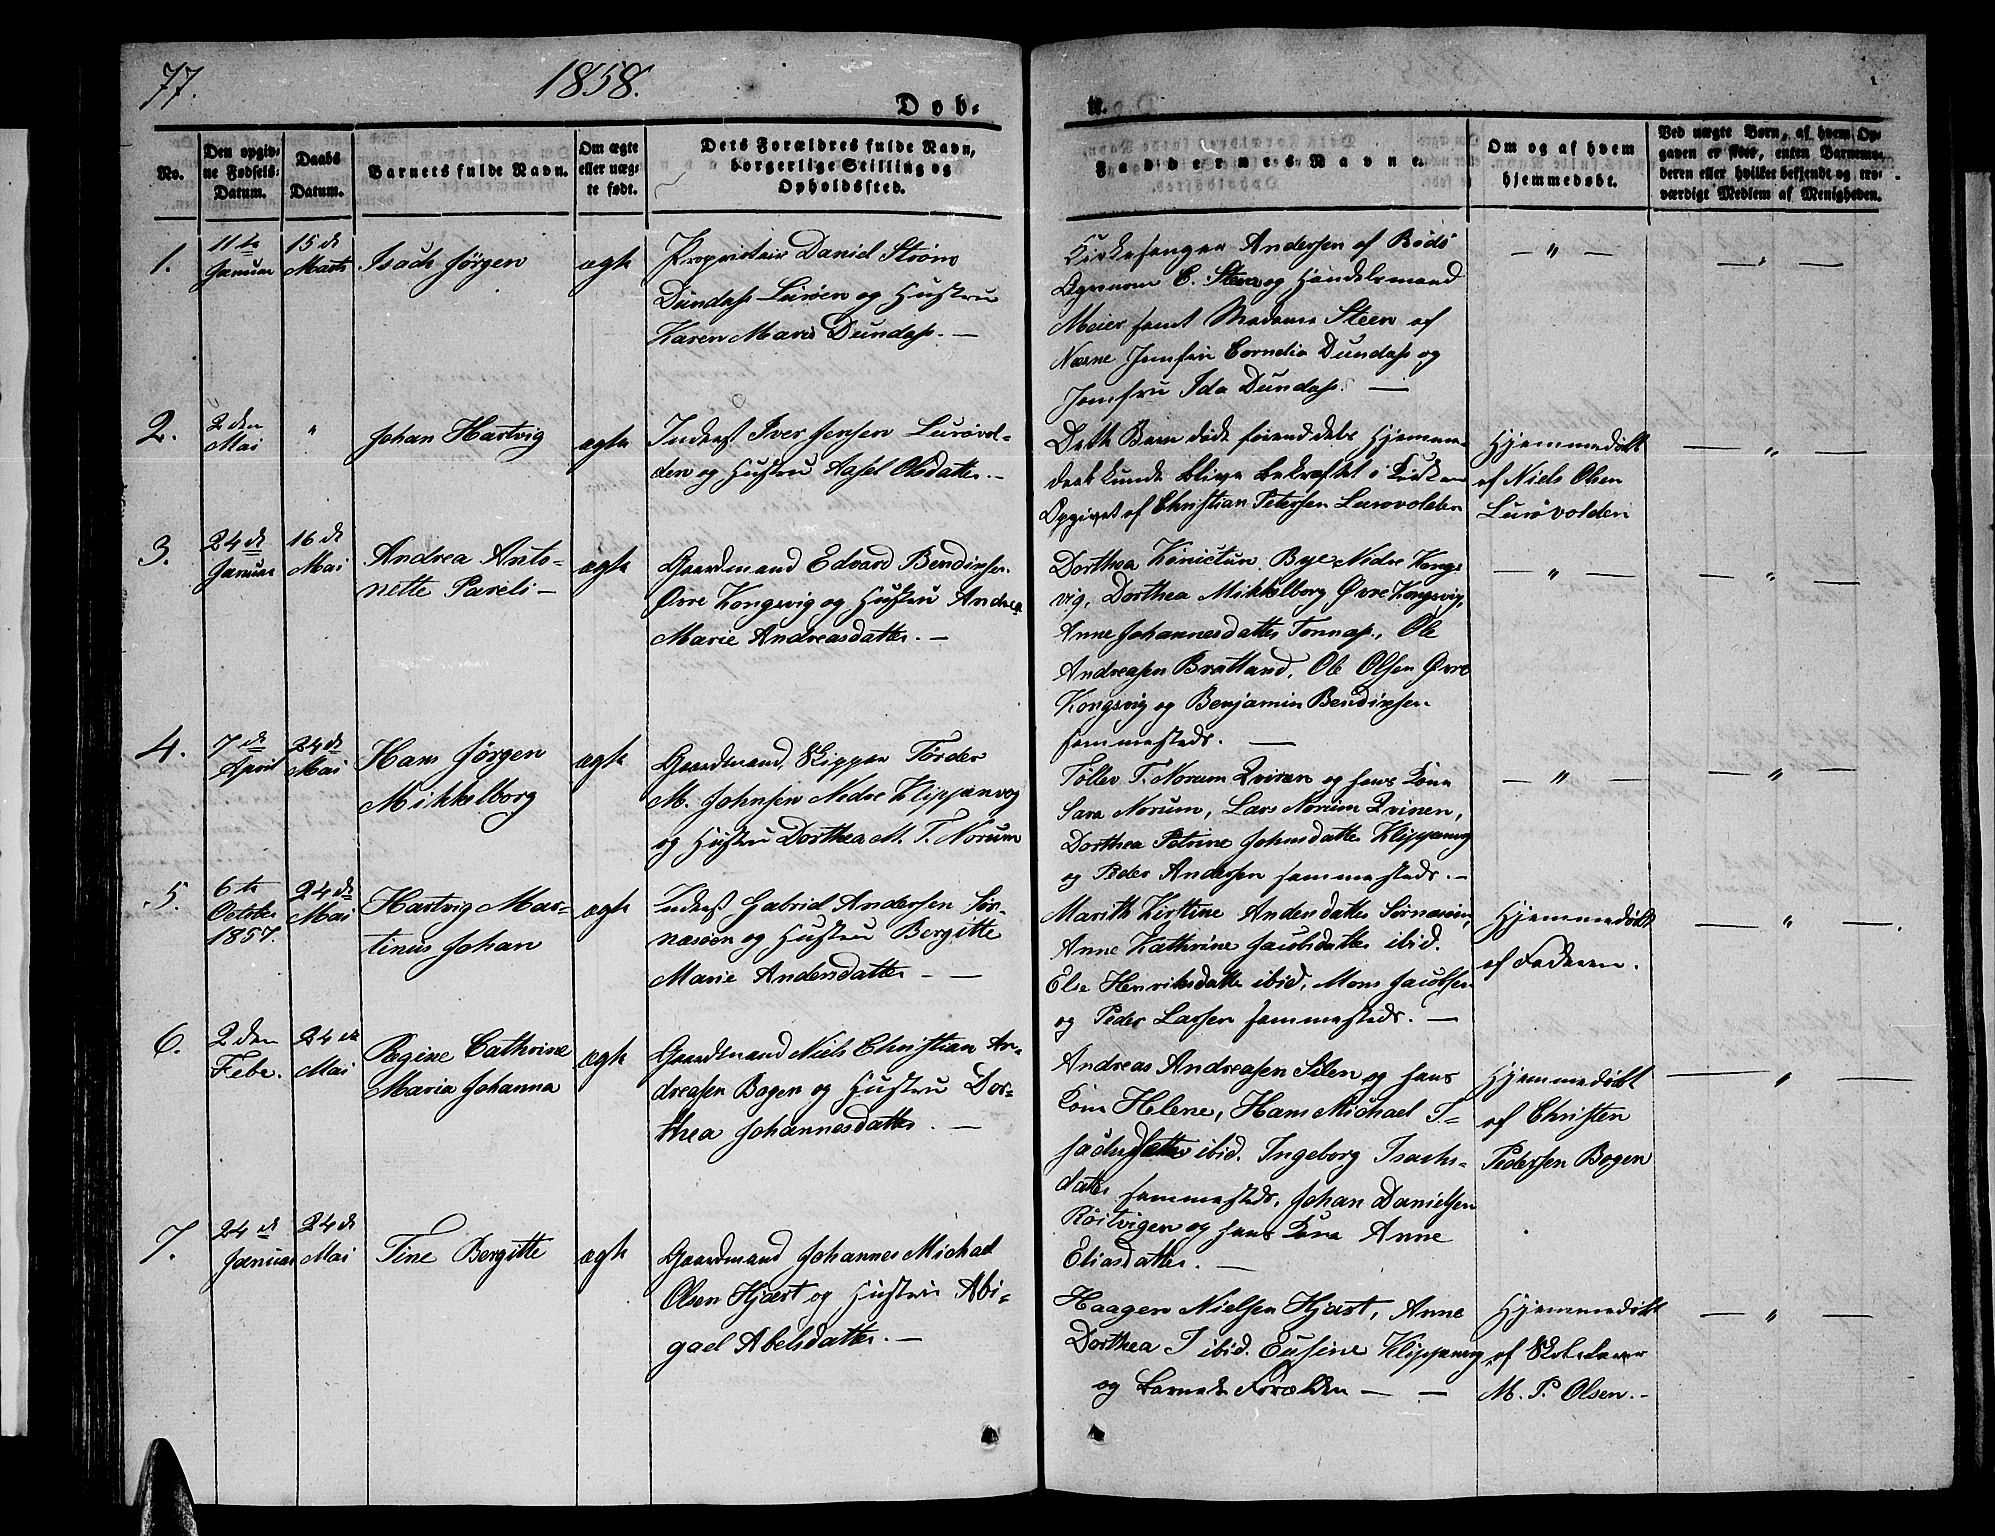 77.
1858.
Døb-
te.
No.
Den opgiv-
ne Fødsels-
Datum.
Daabs
Datum.
Barnets fulde Navn.
Om ægte
eller uæg-
te født.
Dets Forældres fulde Navn,
borgerlige Stilling og
Opholdssted.
Faddernes Navne.
Om og af hvem
hjemmedøbt.
Ved uægte Børn, af hvem Op-
gaven er skeet, enten Barnemo-
deren eller hvilket bekjendt og tro-
værdigt Medlem af Menigheden.
1.
11te
Januar
15de
Marts
Isach Jørgen
ægte
Proprietair Daniel Strøm
Dundass Lurøen og Hustru
Karen Marie Dundass. —
Kirkesanger Andersen af Rødø
C. Steen og Handelsmand
Meier samt Madame Steen af
Næsne Jomfru Cornelia Dundass og
Jomfru Ida Dundass. —
— " —
— " —
2.
2den
Mai
"
Johan Hartvig
ægte
Inderst Iver Jensen Lurøvol-
den og Hustru Aasel Olsdatter. —
Dette Barn døde førend dets Hjemme-
daab kunde blive bekræftet i Kirken
Opgivet af Christian Petersen Lurøvolden
Hjemmedøbt
af Niels Olsen
Lurøvolden
— " —
3.
24de
Januar
16de
Mai
Andrea Anto-
nette Pareli —
ægte
Gaardmand Edvard Bendixsen
Øvre Kongsvig og Hustru Andrea
Marie Andreasdatter. —
Dorthea Bye Nedre Kongs
vig, Dorthea Mikkelborg Øvre Kongsvig,
Anne Johannesdatter Tonnæs, Ole
Andreasen Bratland, Ole Olsen Øvre
Kongsvig og Benjamin Bendixsen
sammesteds. —
— " —
— " —
4.
7de
April
24de
Mai
Hans Jørgen
Mikkelborg
ægte
Gaardmand, Skipper Tørder
M. Johnsen Nedre Klippenvog
og Hustru Dorthea M. T. Norum
Tollev T. Norum Qvinen og hans Kone
Sara Norum, Lars Norum Qvinen,
Dorthea Petrine Johnsdatter Klippenvog
og Peder Andersen sammesteds. —
— " —
— " —
5.
6te
October
1857.
24de
Mai
Hartvig Mar-
tinus Johan
ægte
Inderst Gabriel Andersen Sør-
næsøen og Hustru Bergitte
Marie Andersdatter — —
Marith Kirstine Andersdatter Sørnæsøen,
Anne Kathrine Jacobsdatter ibid.
Else Henriksdatter ibid, Mons Jacobsen
og Peder Larsen sammesteds. —
Hjemmedøbt
af Faderen.
— " —
6.
2den
Febr.
24de
Mai
Regine Cathrine
Maria Johanna
ægte
Gaardmand Niels Christian An-
dreasen Bogen og Hustru Dor-
thea Johannesdatter. —
Andreas Andreasen Silen og hans
Kone Helene, Hans Michael I-
ibid. Ingeborg Isachs-
datter sammesteds, Johan Danielsen
Røitvigen og hans Kone Anne
Eliasdatter. —
Hjemmedøbt
af Christen
Pedersen Bogen
— " —
7.
24de
Januar
24de
Mai
Tine Bergitte
ægte
Gaardmand Johannes Michael
Olsen Hjært og Hustru Abi-
gael Abelsdatter. —
Haagen Nielsen Hjært, Anne
Dorthea I ibid. Eusine Klippenvog
og Barnets Forældre — —
Hjemmedøbt
af Skolelærer
M. P. Olsen. -
— " —